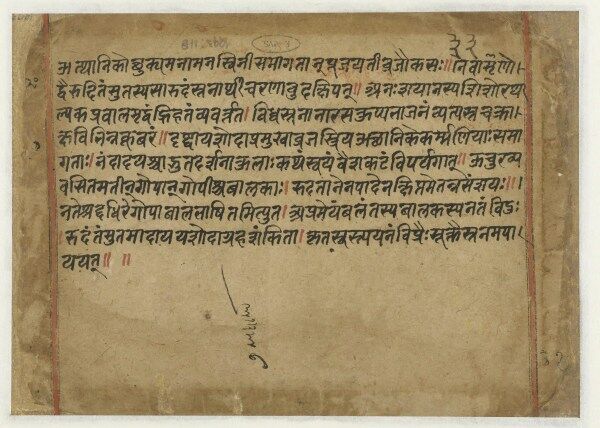 ३३
औत्थानिकौत्सुक्यमनामनस्विनीसमागतान्पूजयतीव्रजौकसः॥नैवाशृणो
द्वैरुदितंसुतस्यसारुदंस्तनार्थीचरणावुदक्षिपत्॥अधःशयानस्यशिशोरथा
ल्पकप्रवालमृद्वंघ्रिहतंव्यवर्तत॥विध्वस्तनानारसकुप्यभाजनंव्यत्यस्तचक्रा
क्षविभिन्नकूबरं॥दृष्ट्वायशोदाप्रमुखाव्रजस्त्रियऔत्थानिकेकर्मणियाःसमा
गताः॥नंदादयश्चाद्भुतदर्शनाकुलाःकथंस्वयंवैशकटंविपर्यगात्॥ऊचुरव्य
वसितमतीन्गोपान्गोपीश्चबालकाः॥रुदतानेनपादेनक्षिप्तमेतन्नसंशयः॥
नतेश्रद्दधिरेगोपाबालभाषितमित्युत॥अप्रमेयंबलंतस्यबालकस्यनतेविदुः
॥रुदंतंसुतमादाययशोदाग्रहशंकिता॥कृतस्वस्त्ययनंविप्रैःसूक्तैस्तनमपा
ययत्॥॥